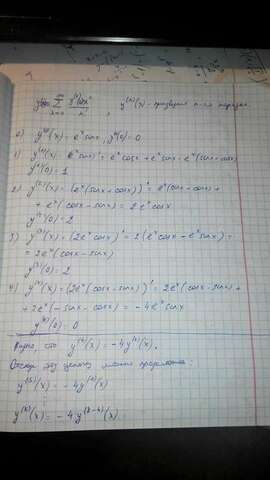 y(x) = ∑ y⁽ⁿ⁾(0)xⁿ / n! , y⁽ⁿ⁾(x) - n-го
0) y⁽⁰⁾(x) = eˣ sinx, y⁽⁰⁾(0) = 0
1) y⁽¹⁾(x) = (eˣ sinx)' = eˣ cosx + eˣ sinx = eˣ(sinx + cosx)
y⁽¹⁾(0) = 1
2) y⁽²⁾(x) = (eˣ(sinx + cosx))' = eˣ(sinx + cosx) +
+ eˣ(cosx - sinx) = 2eˣ cosx
y⁽²⁾(0) = 2
3) y⁽³⁾(x) = (2eˣ cosx)' = 2(eˣ cosx - eˣ sinx) =
= 2eˣ(cosx - sinx)
y⁽³⁾(0) = 2
4) y⁽⁴⁾(x) = (2eˣ(cosx - sinx))' = 2eˣ(cosx - sinx) +
+ 2eˣ(-sinx - cosx) = -4eˣ sinx
y⁽⁴⁾(0) = 0
Видно, что y⁽⁴⁾(x) = -4y⁽⁰⁾(x).
Отсюда
y⁽⁵⁾(x) = -4y⁽¹⁾(x)
⋮
y⁽ᵏ⁾(x) = -4y⁽ᵏ⁻⁴⁾(x)